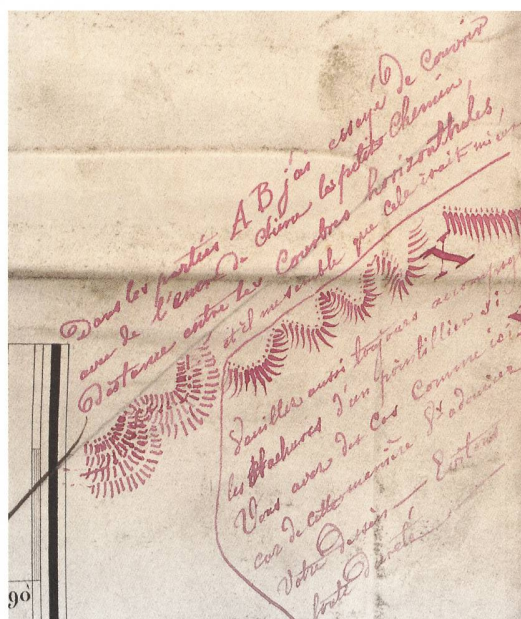 Dans les parties A B j'ai essayé de Couvrir
avec de l'encre de chine les petits Chemin,
Distance entre les Courbes horizonthales,
et il me semble que cela irait mieux
X
Veuillez aussi toujours accompagn
les Hachures d'un pointillier si
Vous avez des cas comme ici
car de cette manière
Votre dessin — Evitons
toute dureté
90